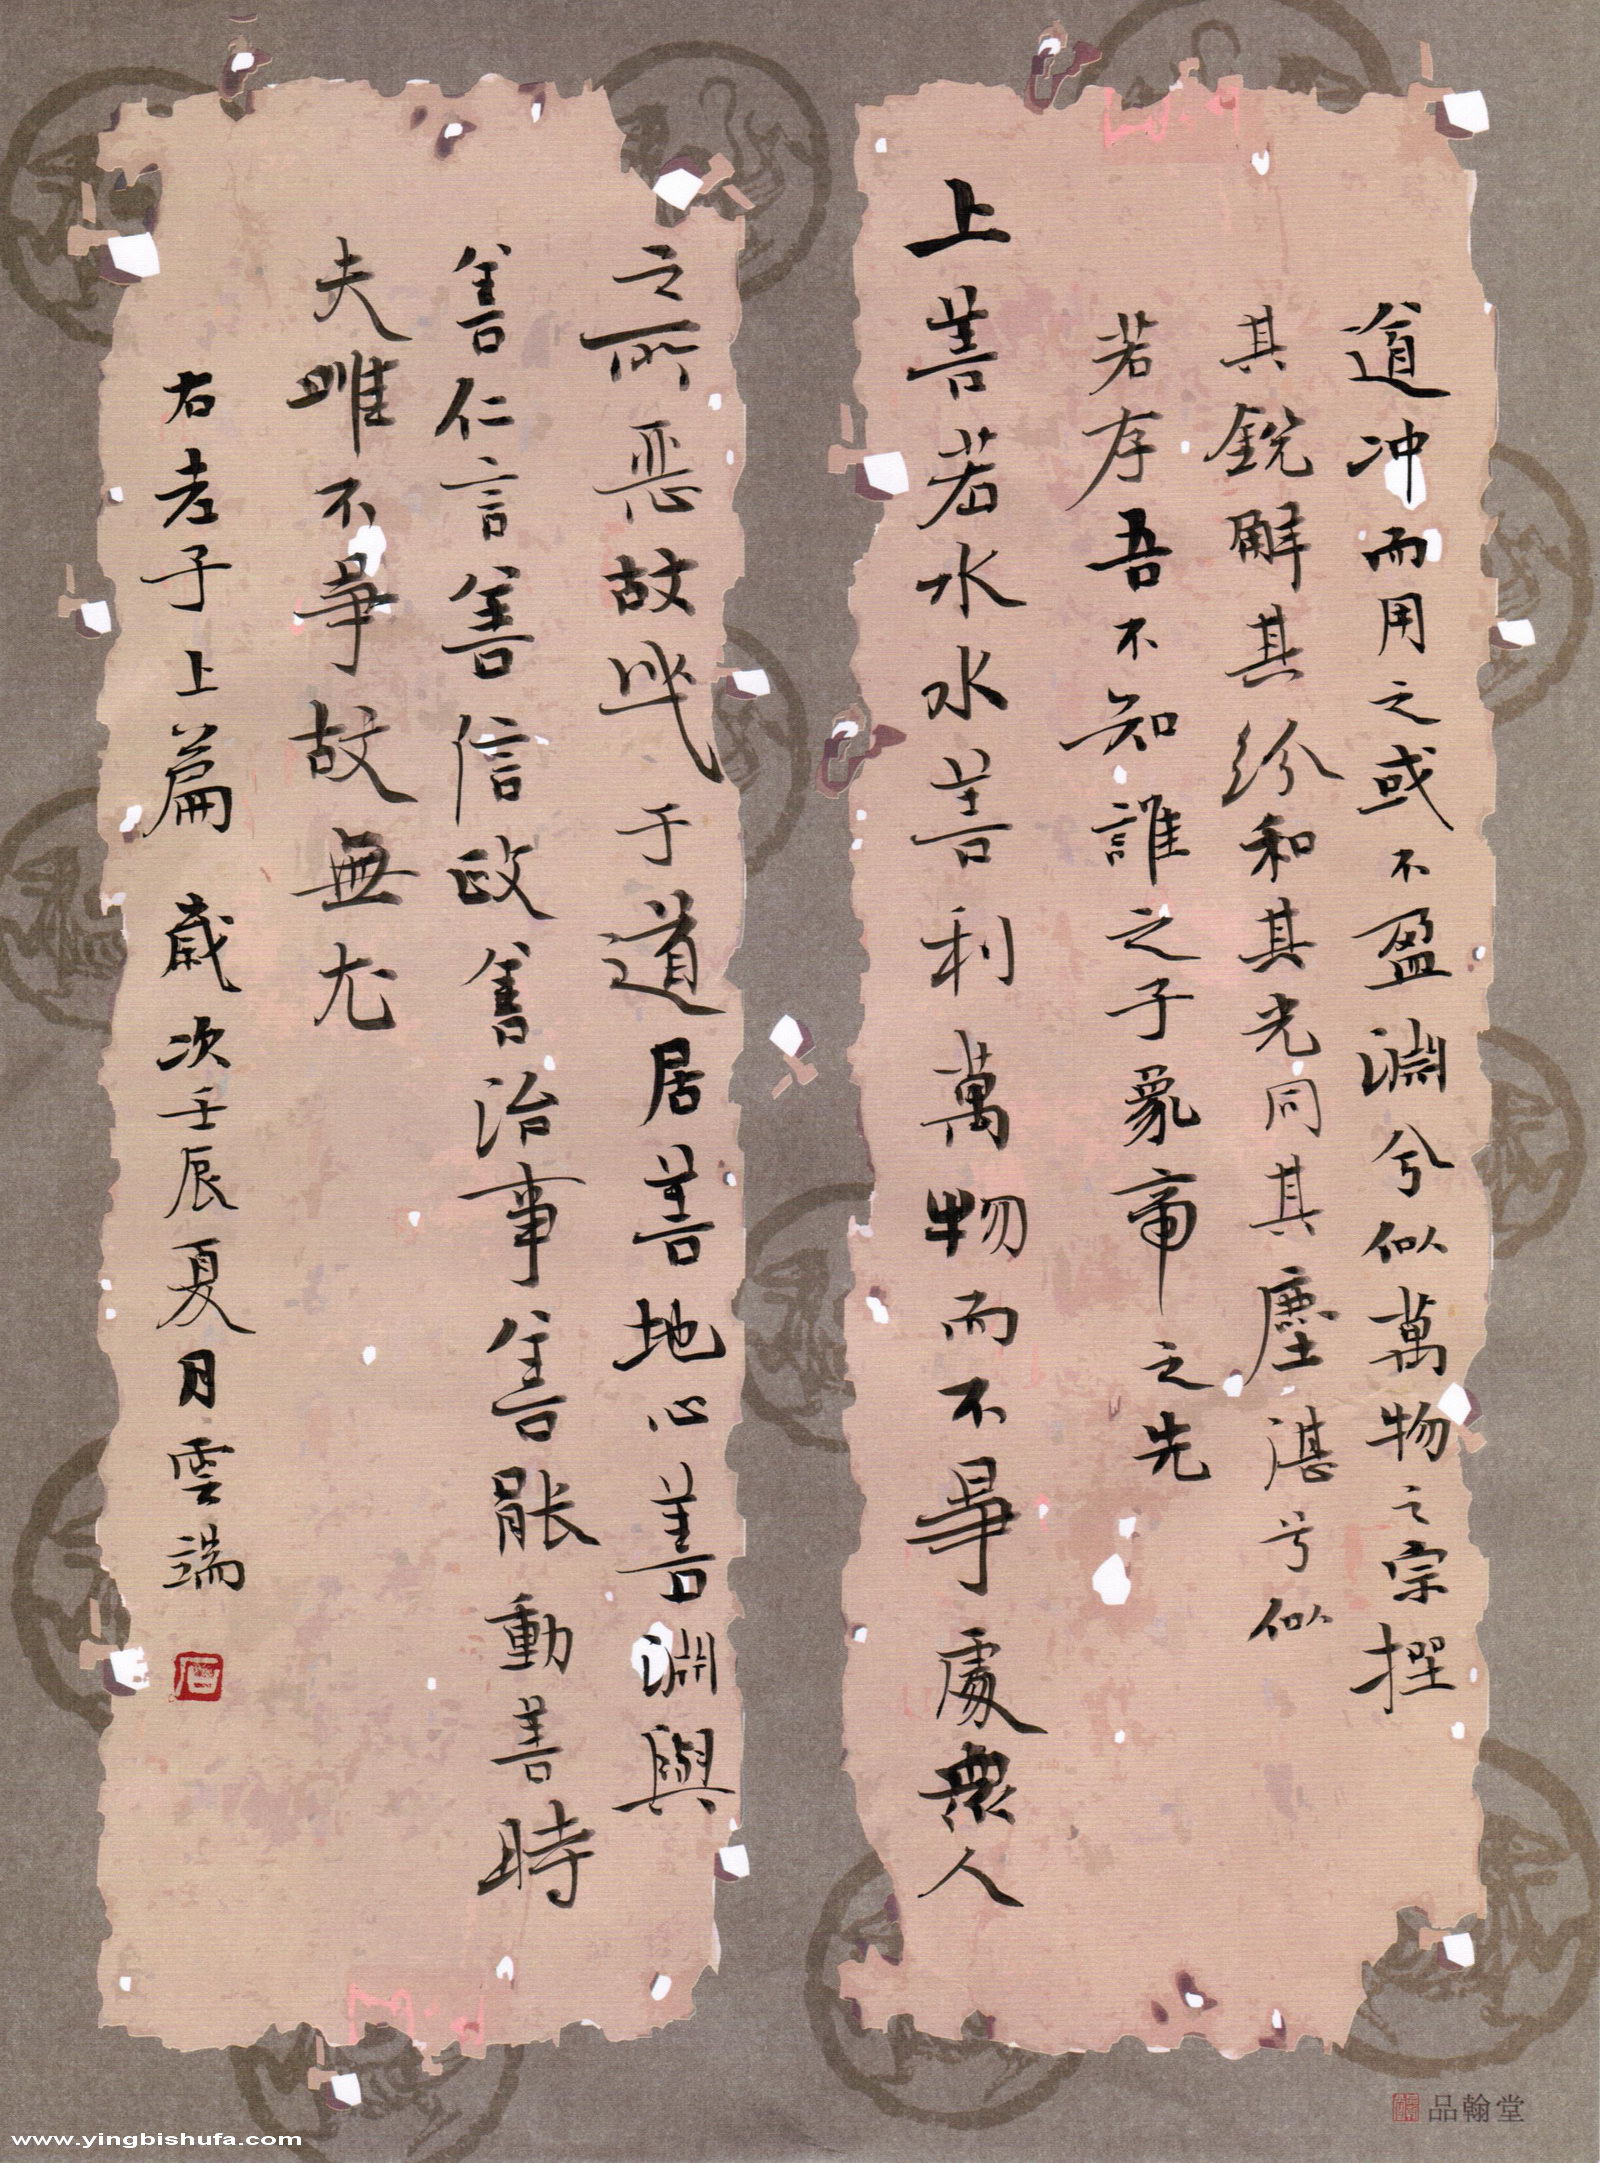 道冲而用之或不盈淵兮似萬物之宗挫
其銳解其紛和其光同其塵湛兮似
若存吾不知誰之子象帝之先
上善若水水善利萬物而不爭處衆人
之所惡故幾于道居善地心善淵與
善仁言善信政善治事善能動善時
夫唯不爭故無尤
右老子上篇 歲次壬辰夏月雲端
石
品翰堂
www.yingbishufa.com